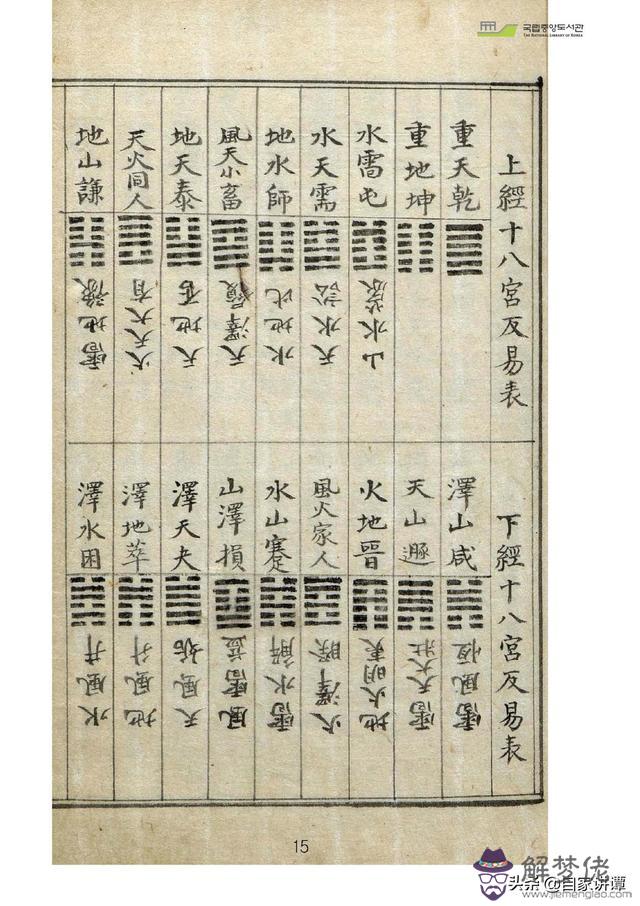 국립중앙도서관
THE NATIONAL LIBRARY OF KOREA
上經十八宮反易表
重天乾
重地坤
水雷屯
山水蒙
水天需
天水訟
地水師
水地比
風天小畜
天澤履
地天泰
天地否
天火同人
火天大有
地山謙
雷地豫
下經十八宮反易表
澤山咸
雷風恆
天山遯
雷天大壯
火地晉
地火明夷
風火家人
火澤睽
水山蹇
雷水解
山澤損
風雷益
澤天夬
天風姤
澤地萃
地風升
澤水困
水風井
15
解梦佬
头条 @自家讲谭
www.jiemenglao.com